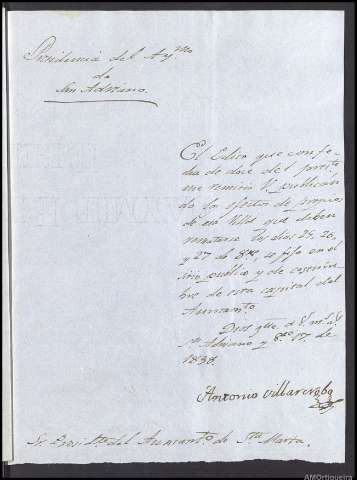 Presidencia del Ay.mto
de
San Adriano.
El Edicto que con fe-
cha de doce del pres.te
me remitió V. publican-
do los efectos de propios
de esa Villa que deben
rematarse los dias 25, 26,
y 27 de 8.re, se fijó en el
sitio publico y de costum-
bre de esta capital del
Ayuntam.to
Dios gue. a V. m.s a.s
S.n Adriano y 17, de
1838.
Antonio Villarevoba
Sr. Presid.te del Ayuntam.to de S.ta Marta.
AMOrtigueira